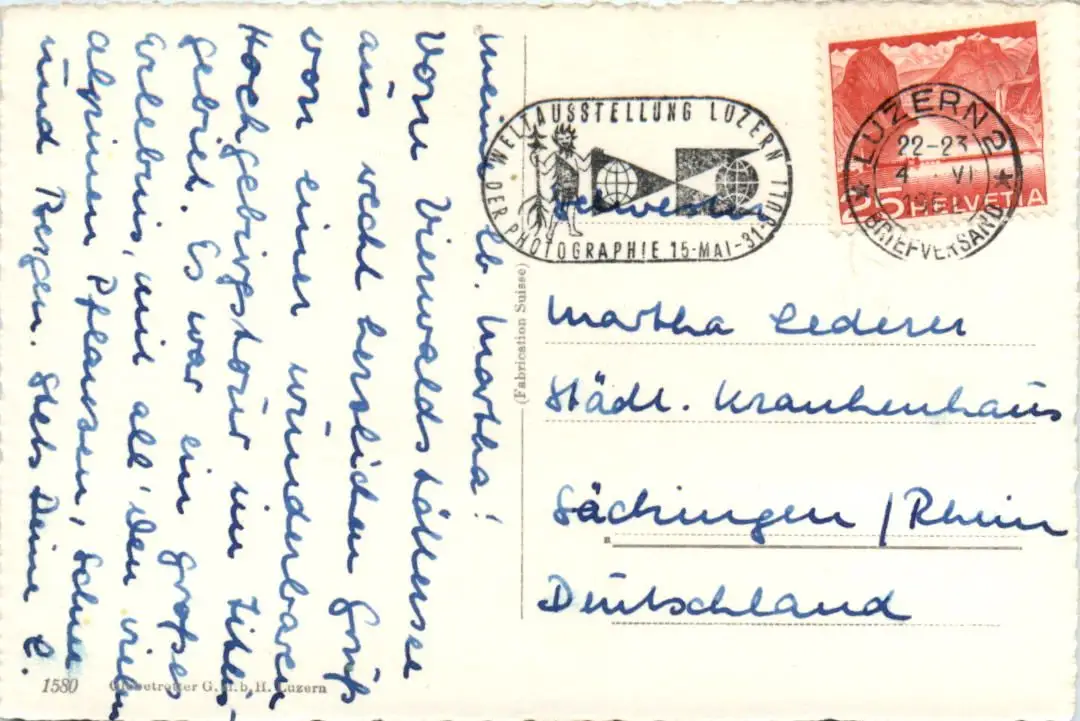 Meine lb. Martha!
Vom Vierwaldstättersee
aus recht herzlichen Gruß
von einer wunderbaren
Hochgebirgstour im Titlis-
gebiet. Es war ein großes
Erlebnis, mit all' den vielen
alpinen Pflanzen, Schnee
und Regen. Stets Deine E.
WELTAUSSTELLUNG LUZERN
DER PHOTOGRAPHIE 15-MAI-31-JULI
LUZERN 2
22-23
4 VI
BRIEFVERSAND
25 HELVETIA
Schwester
Martha Lederer
Städt. Krankenhaus
Säckingen / Rhein
Deutschland
(Fabrication Suisse)
1580 Globetrotter G.m.b.H. Luzern